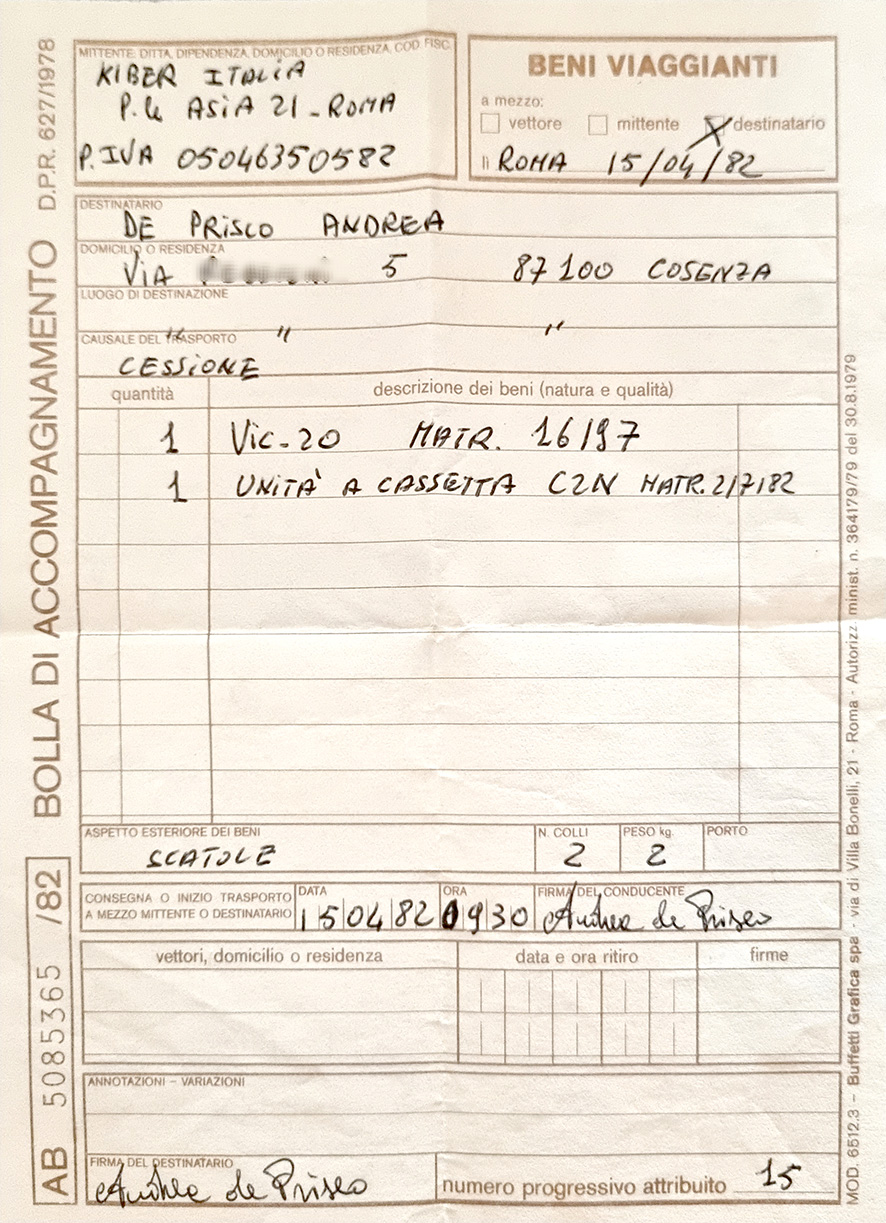 MITTENTE: DITTA, DIPENDENZA, DOMICILIO O RESIDENZA, COD. FISC.
KIBER ITALIA
P.le ASIA 21 - ROMA
P.IVA 05046350582
BENI VIAGGIANTI
a mezzo:
vettore mittente destinatario
lì ROMA 15/04/82
DESTINATARIO
DE PRISCO ANDREA
DOMICILIO O RESIDENZA
VIA 5 87100 COSENZA
LUOGO DI DESTINAZIONE
" " "
CAUSALE DEL TRASPORTO
CESSIONE
quantità descrizione dei beni (natura e qualità)
1 VIC-20 MATR. 16197
1 UNITA' A CASSETTA C2N MATR. 217182
ASPETTO ESTERIORE DEI BENI N. COLLI PESO kg. PORTO
SCATOLE 2 2
CONSEGNA O INIZIO TRASPORTO DATA ORA FIRMA DEL CONDUCENTE
A MEZZO MITTENTE O DESTINATARIO 150482 0930 Andrea de Prisco
vettori, domicilio o residenza data e ora ritiro firme
ANNOTAZIONI - VARIAZIONI
FIRMA DEL DESTINATARIO
Andrea de Prisco numero progressivo attribuito 15
AB 5085365 /82 BOLLA DI ACCOMPAGNAMENTO D.P.R. 627/1978
MOD. 6512.3 - Buffetti Grafica spa - via di Villa Bonelli, 21 - Roma - Autorizz. minist. n. 364179/79 del 30.8.1979